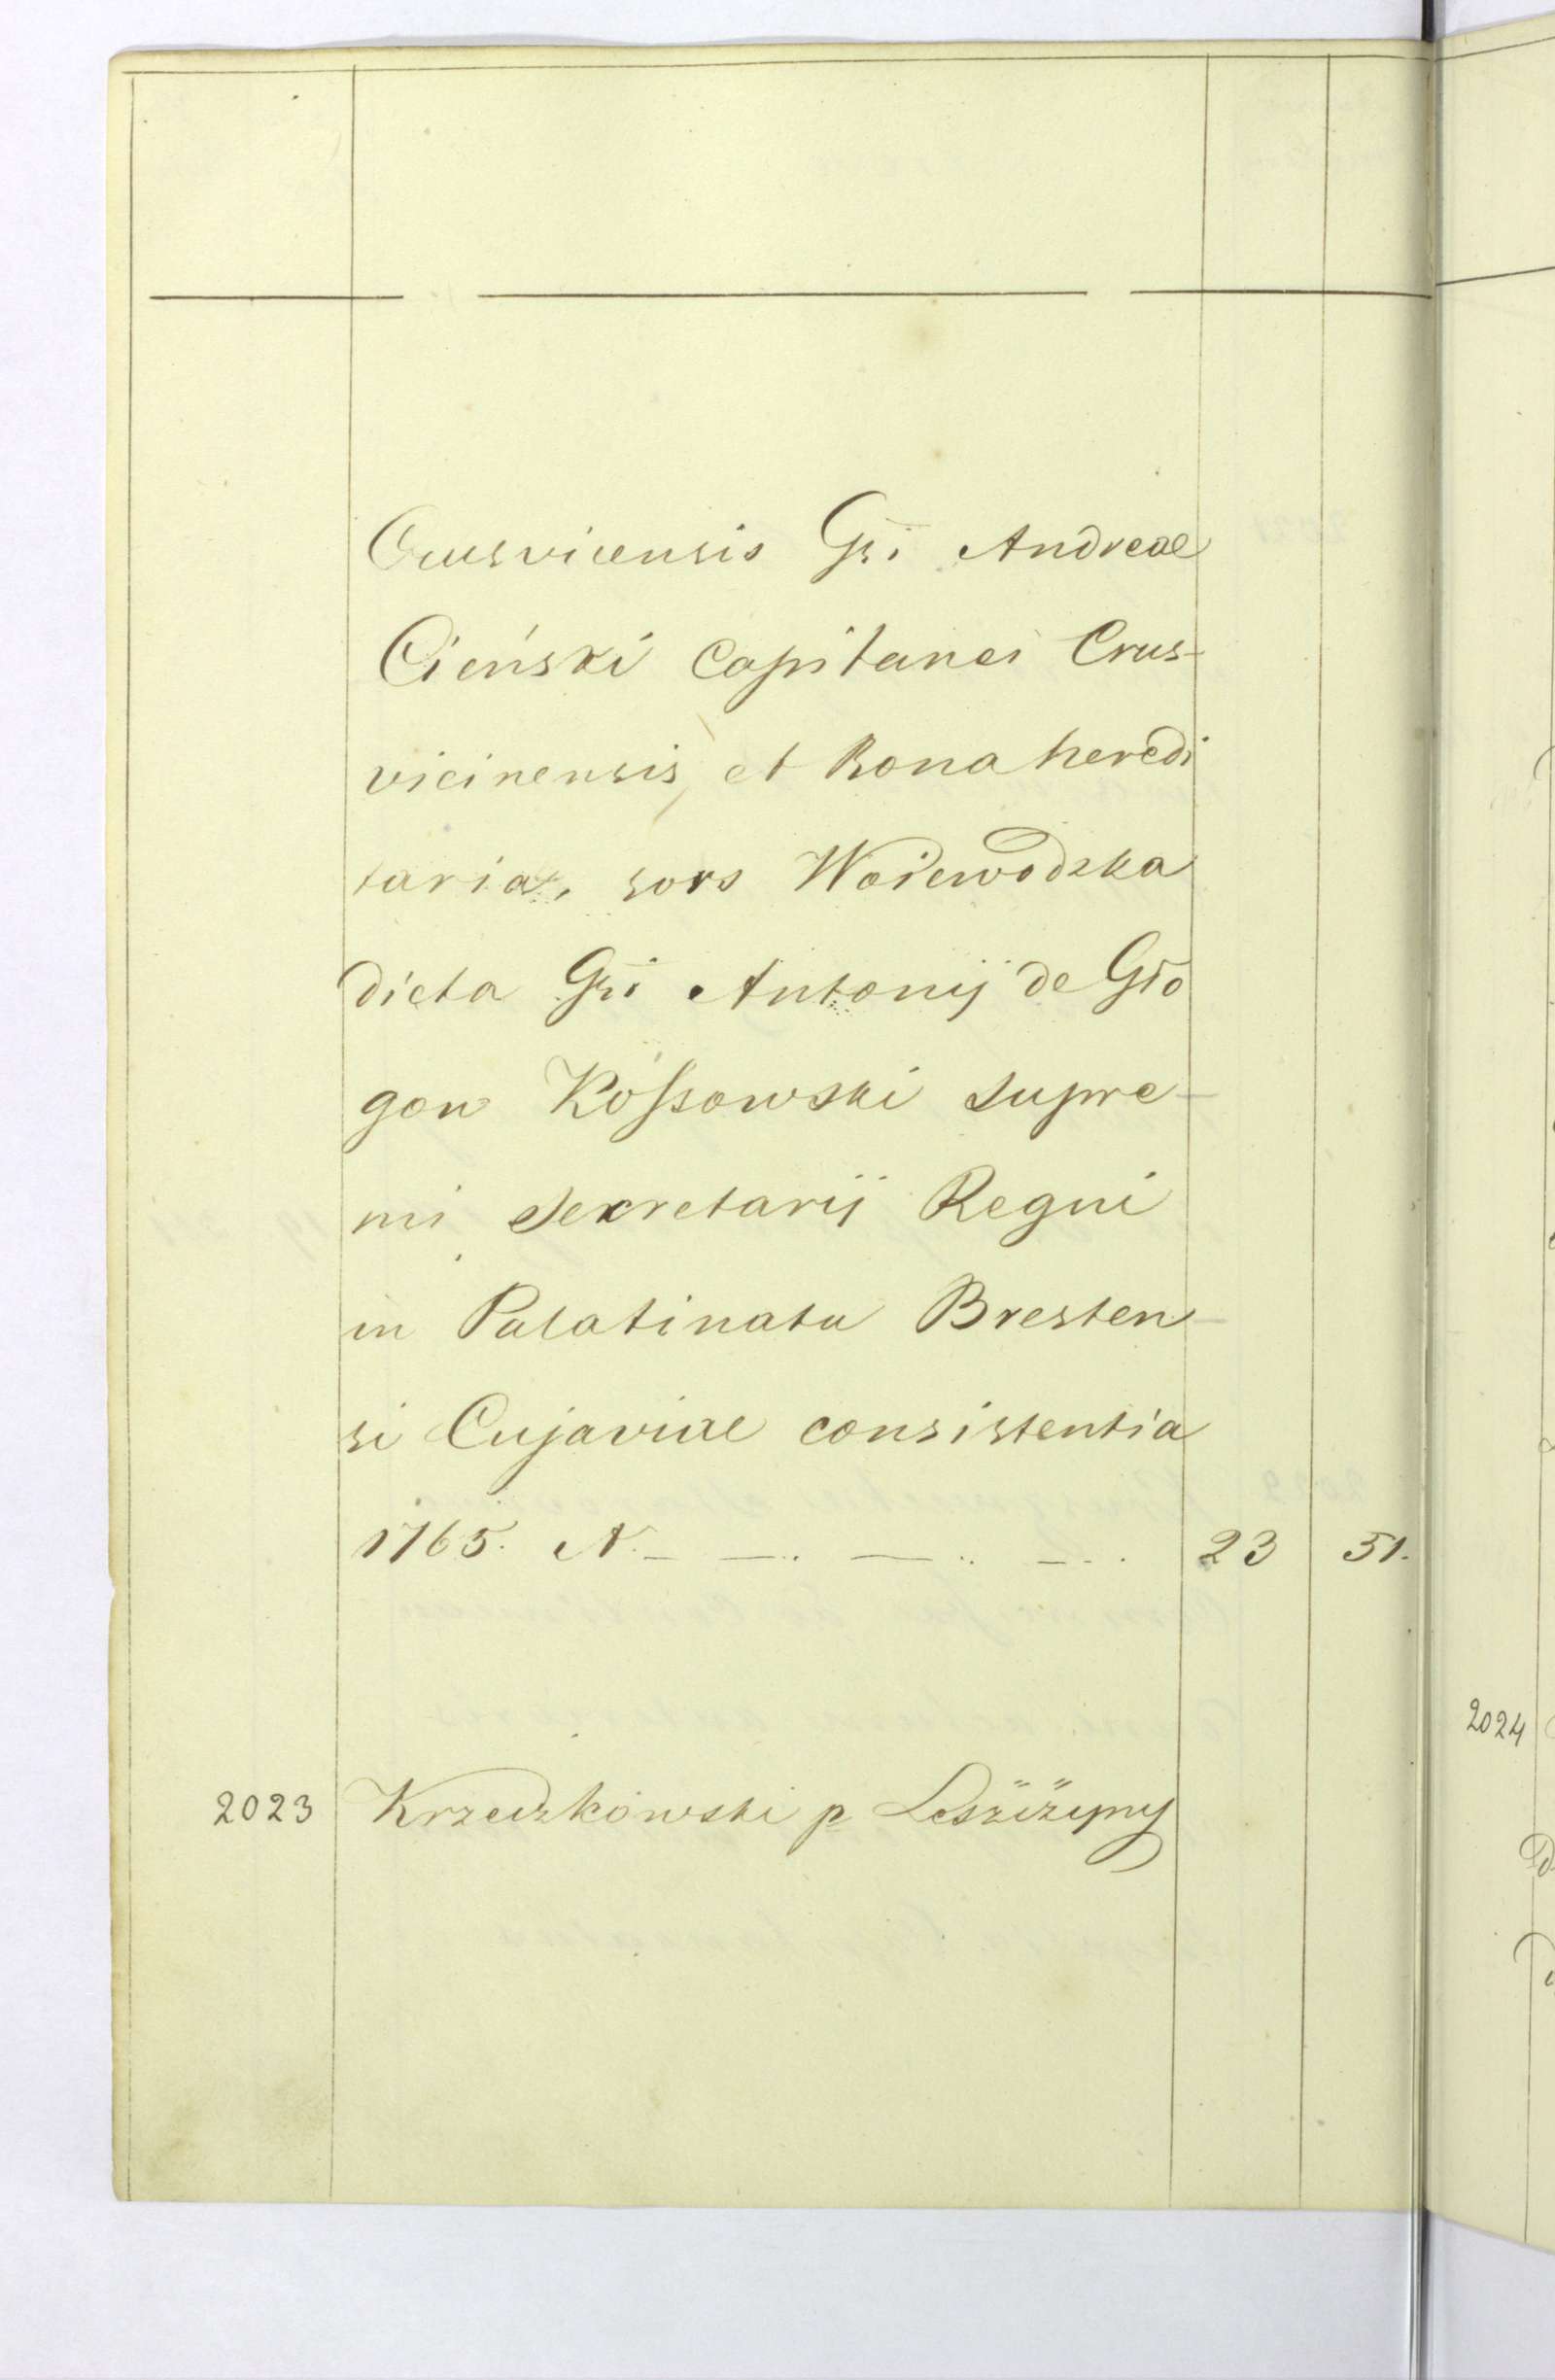 Crusvicensis Gsi Andreae
Cieński Capitanei Crus-
vicinensis, et Bona heredi
taria, sors Woiewodzka
dicta Gsi Antonij de Gło
gow Kossowski supre-
mi Secretarij Regni
in Palatinatu Bresten-
si Cujaviae consistentia
1765. N. 23 51.
2023 Krzeczkowski p
2024